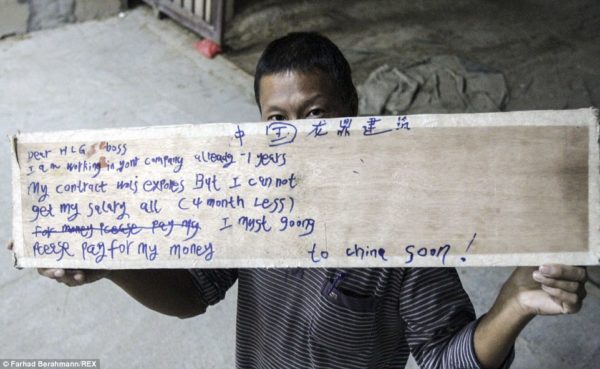 中国龙鼎建筑
Dear HLG boss
I am working in yont company already -1 years
My contract expores But I can not
get my salary all (4 month Less)
for money Pleese pay my I myst goong
Pleese pay for my money to china soon!
© Farhad Berahmann/REX